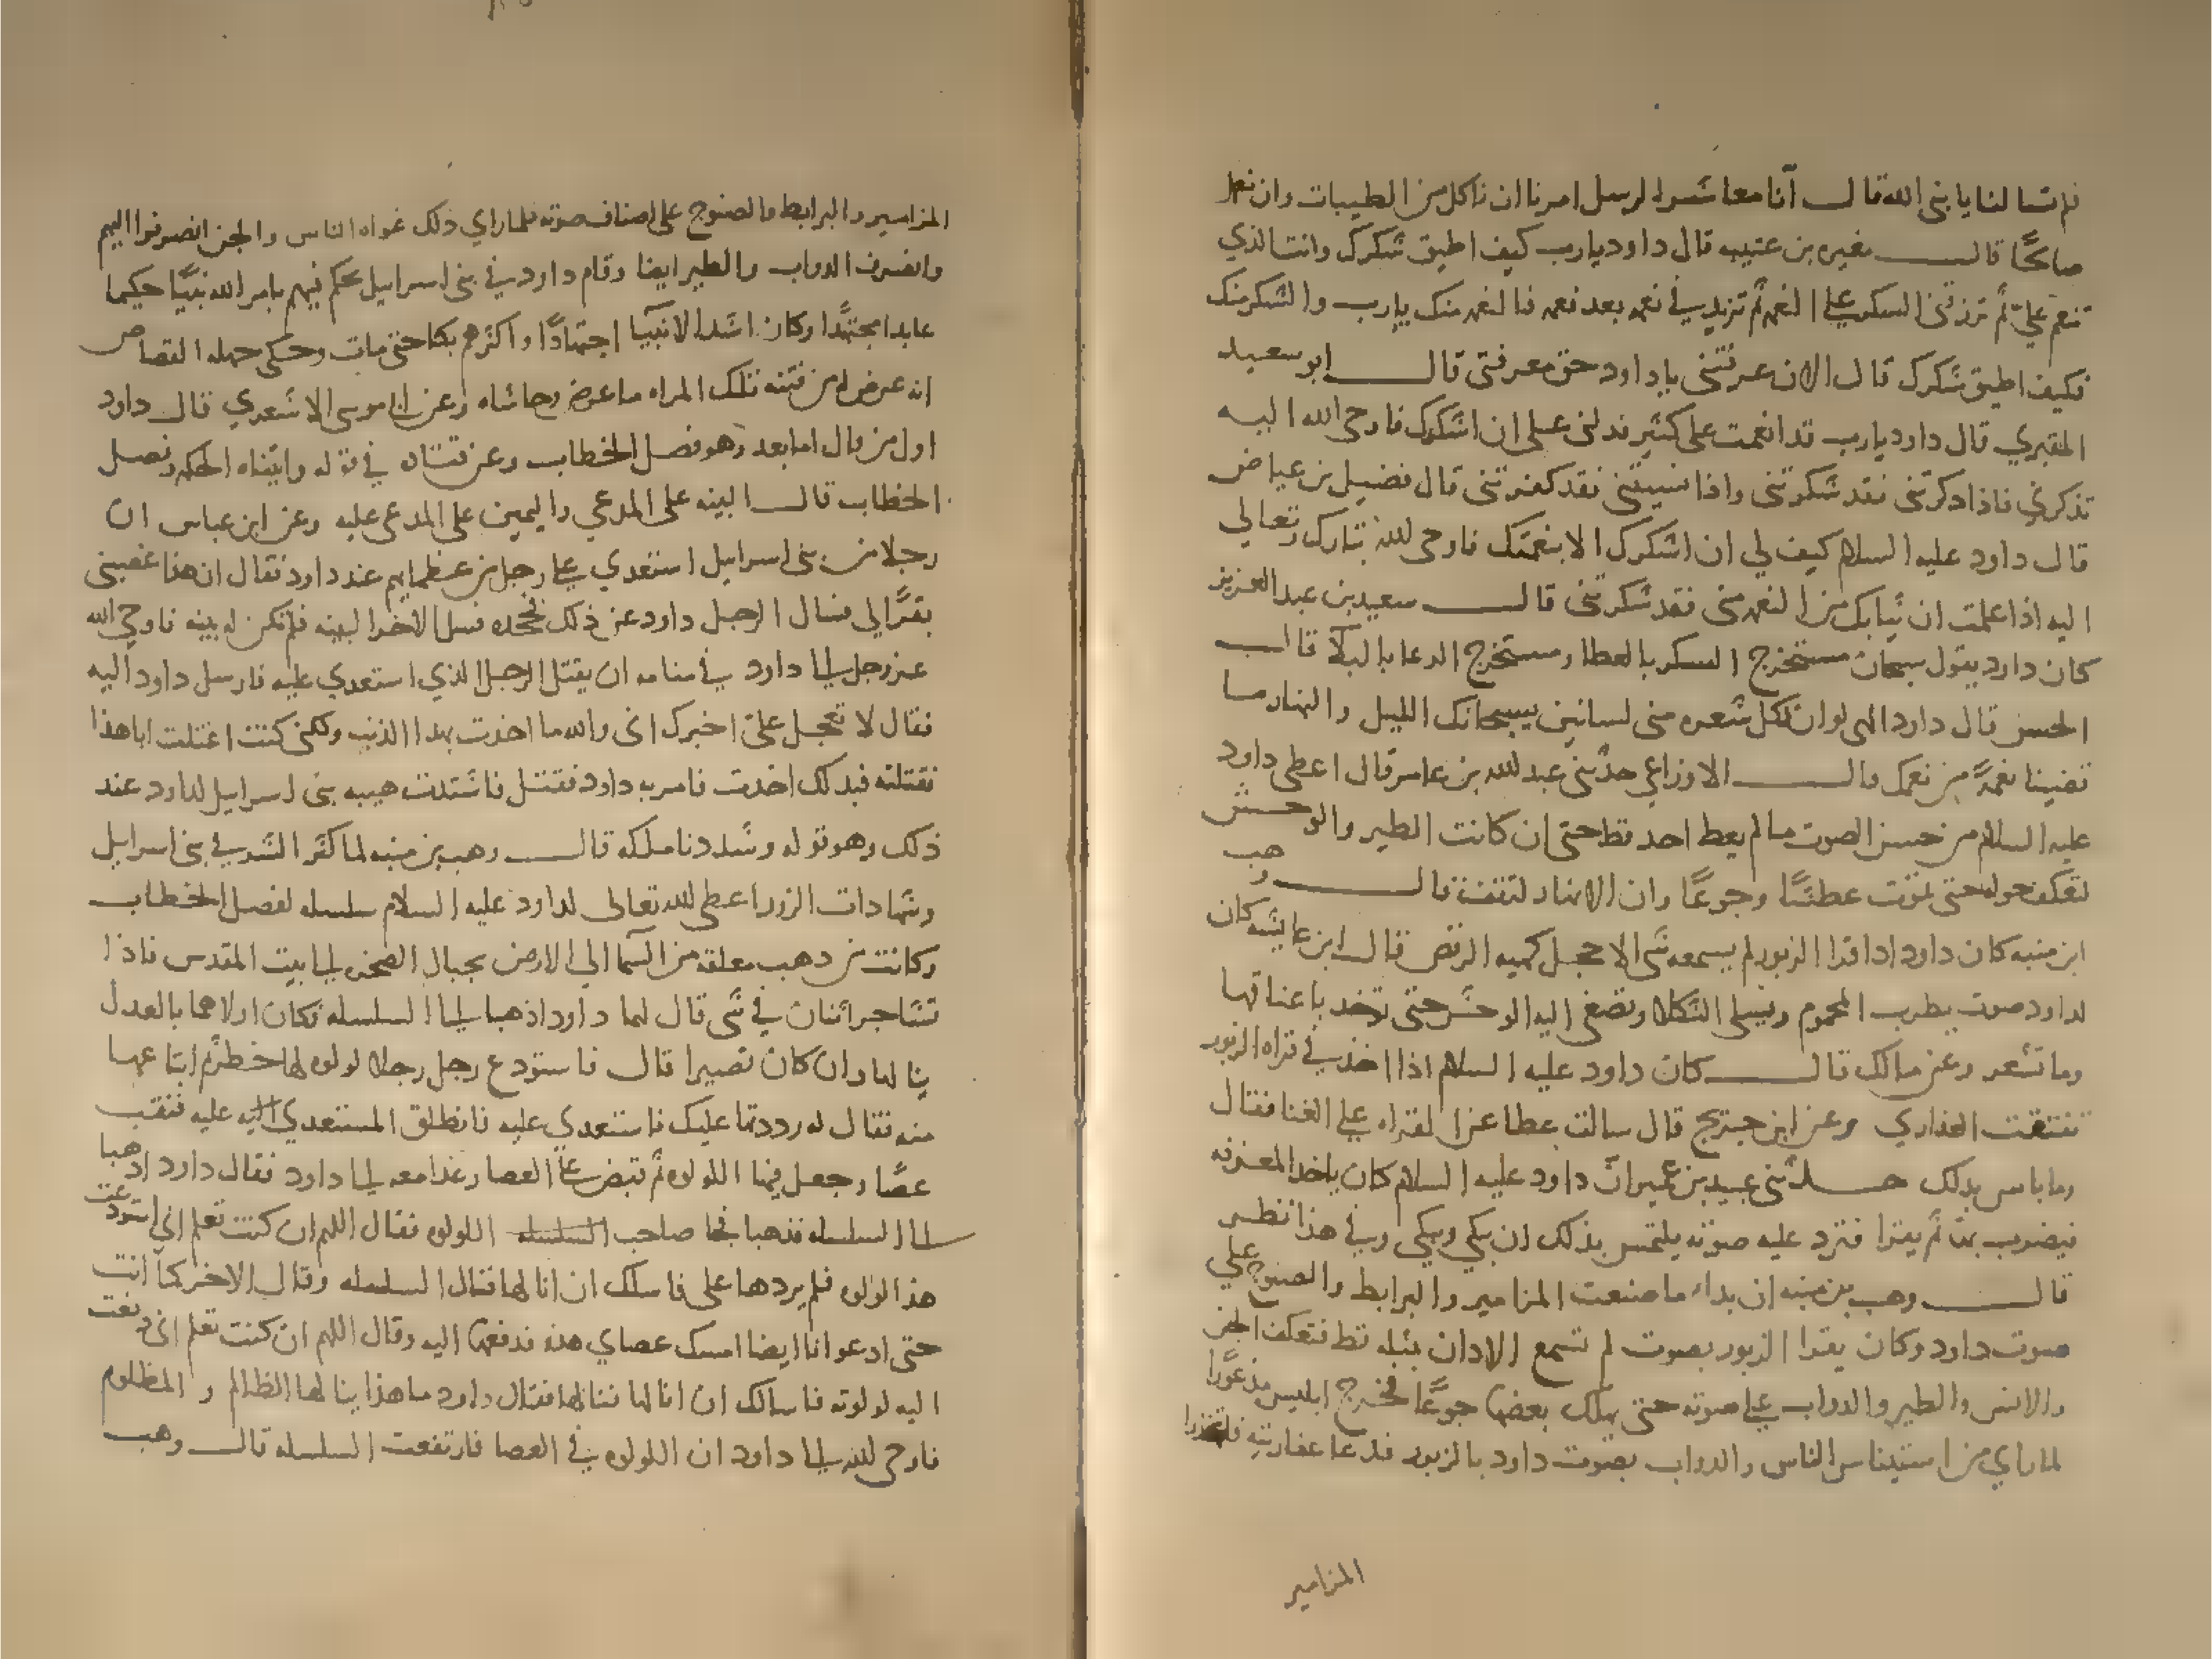 فلم تسالنا يا بنى الله قال انا معاشر الرسل امرنا ان ناكل من الطيبات وان نعمل
صالحًا قال مغيره بن عتيبه قال داود يارب كيف اطيق شكرك وانت الذي
تنعم عليّ ثم ترزقنى الشكر على النعم ثم تزيدني نعمه بعد نعمه فالنعم منك يارب والشكر منك
فكيف اطيق شكرك قال الان عرفتنى ياداود حق معرفتى قال ابو سعيد
المقبري قال داود يارب قد انعمت على كثير فدلنى على ان اشكرك فاوحى الله اليه
تذكرني فاذا دكرتنى فقد شكرتنى واذا نسيتنى فقد كفرتنى قال فضيل بن عياض
قال داود عليه السلام كيف لي ان اشكرك الا بنعمتك فاوحى الله تبارك وتعالى
اليه اذا علمت ان ما بك من النعم منى فقد شكرتنى قال سعيد بن عبد العزيز
كان داود يقول سبحان مستخرج الشكر بالعطا ومستخرج الدعا بالبلآ قال
الحسن قال داود الهى لو ان لكل شعره منى لسانين يسبحانك الليل والنهار ما
قضينا نعمةً من نعمك قال الاوزاعي حدثنى عبد الله بن عامر قال اعطى داود
عليه السلام من حسن الصوت ما لم يعط احد قط حتى ان كانت الطير والوحش
تعكف حوله حتى تموت عطشًا وجوعًا وان الانهار لتقف قال وهب
ابن منبه كان داود اذا قرا الزبور لم يسمعه شى الا حجل كهيه الرقص قال ابن عايشه كان
لداود صوت يطرب المحموم ويسلى الثكلا وتصغي اليه الوحش حتى توخد باعناقها
وما تشعر وعن مالك قال كان داود عليه السلام اذا اخذ في قراه الزبور
تفتقت العذاري وعن ابن جريج قال سالت عطا عن القراه على الغنا فقال
وما باس بدلك حدثنى عبيد بن عمير ان داود عليه السلام كان ياخد المعزفه
فيضرب بها ثم يقرا فترد عليه صوته يلتمس بذلك ان يبكي ويبكي وفي هذا نظر
قال وهب بن منبه ان بداء ما صنعت المزامير والبرابط والصنوج على
صوت داود وكان يقرا الزبور بصوت لم تسمع الادان بمثله قط فتعكف الجن
والانس والطير والدواب على صوته حتى يهلك بعضها جوعًا فخرج ابليس مذعورًا
لما راي من استيناس الناس والدواب بصوت داود بالزبور فدعا عفاريته فاتخذوا
المزامير
المزامير والبرابط والصنوج على اصناف صوته فلما راي ذلك غواه الناس والجن انصرفوا اليهم
وانصرف الدواب والطير ايضا وقام داود في بنى اسرايل يحكم فيهم بامر الله نبيًا حكيما
عابدا مجتهدًا وكان اشد الانبيآ اجتهادًا واكثرهم بكا حتى مات وحكى جهله القصاص
انه عرض له من فتنه تلك المراه ما عرض وحاشاه وعن ابي موسى الاشعري قال داود
اول من قال اما بعد وهو فصل الخطاب وعن قتاده في قوله واتيناه الحكمه وفصل
الخطاب قال البينه على المدعي واليمين على المدعى عليه وعن ابن عباس ان
رجلا من بنى اسرايل استعدي على رجل من عظمايهم عند داود فقال ان هذا غصبنى
بقرًا لي فسال الرجل داود عن ذلك فجحده فسل الاخر البينه فلم تكن له بينه فاوحى الله
عز وجل الى داود في منامه ان يقتل الرجل الذي استعدي عليه فارسل داود اليه
فقال لا تعجل علىّ اخبرك انى والله ما اخذت بهدا الذنب ولكنى كنت اغتلت ابا هذا
فقتلته فبدلك اخذت فامر به داود فقتل فاشتدت هيبه بنى اسرايل لداود عند
ذلك وهو قوله وشددنا ملكه قال وهب بن منبه لما كثر الشر في بنى اسرايل
وشهادات الزور اعطى الله تعالى لداود عليه السلام سلسله لفصل الخطاب
وكانت من دهب معلقه من السما الى الارض بجبال الصخره الى بيت المقدس فاذا
تشاجر اثنان في شى قال لهما داود اذهبا الى السلسله فكان اولاهما بالعدل
ينالها وان كان قصيرا قال فاستودع رجل رجلا لولوه لها خطر ثم ابتاعها
منه فقال له رددتها عليك فاستعدي عليه فانطلق المستعدي اليه عليه فنقب
عصًا وجعل فيها اللولوه ثم قبض على العصا وغدا معه الى داود فقال داود ادهبا
الى السلسله فذهبا فجا صاحب السلسله اللولوه فقال اللهم ان كنت تعلم انى استودعت
هذا لولوه فلم يردها على فاسلك ان انالها فنال السلسله وقال الاخر كما انت
حتى ادعو انا ايضا امسك عصاي هذه فدفعها اليه وقال اللهم ان كنت تعلم انى دفعت
اليه لولوته فاسالك ان انالها فنالها فقال داود ما هذا ينالها الظالم والمظلوم
فاوحى الله الى داود ان اللولوه في العصا فارتفعت السلسله قال وهب